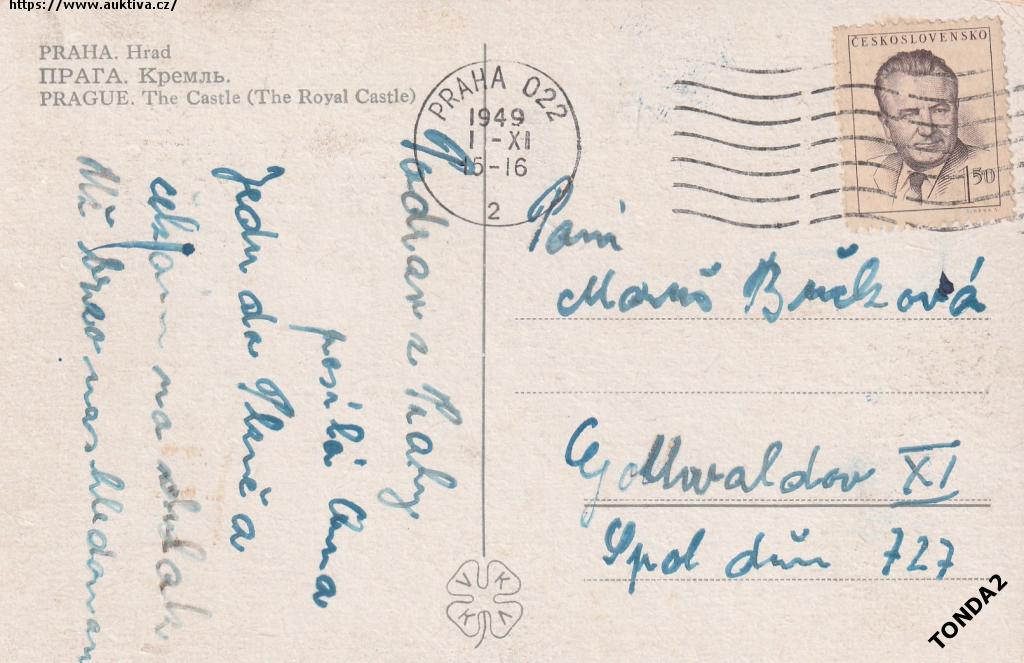 https://www.auktiva.cz/
PRAHA. Hrad
ПРАГА. Кремль.
PRAGUE. The Castle (The Royal Castle)
PRAHA 022
1949
1-XI
15-16
2
ČESKOSLOVENSKO
1.50
Pozdrav z Prahy
posílá Anna
Jedu do Plzně a
čekám na vlak
Již brzo nashledanou
Paní
Maruš Bučková
Gottwaldov XI
Spol dům 727
VKKV
TONDA2